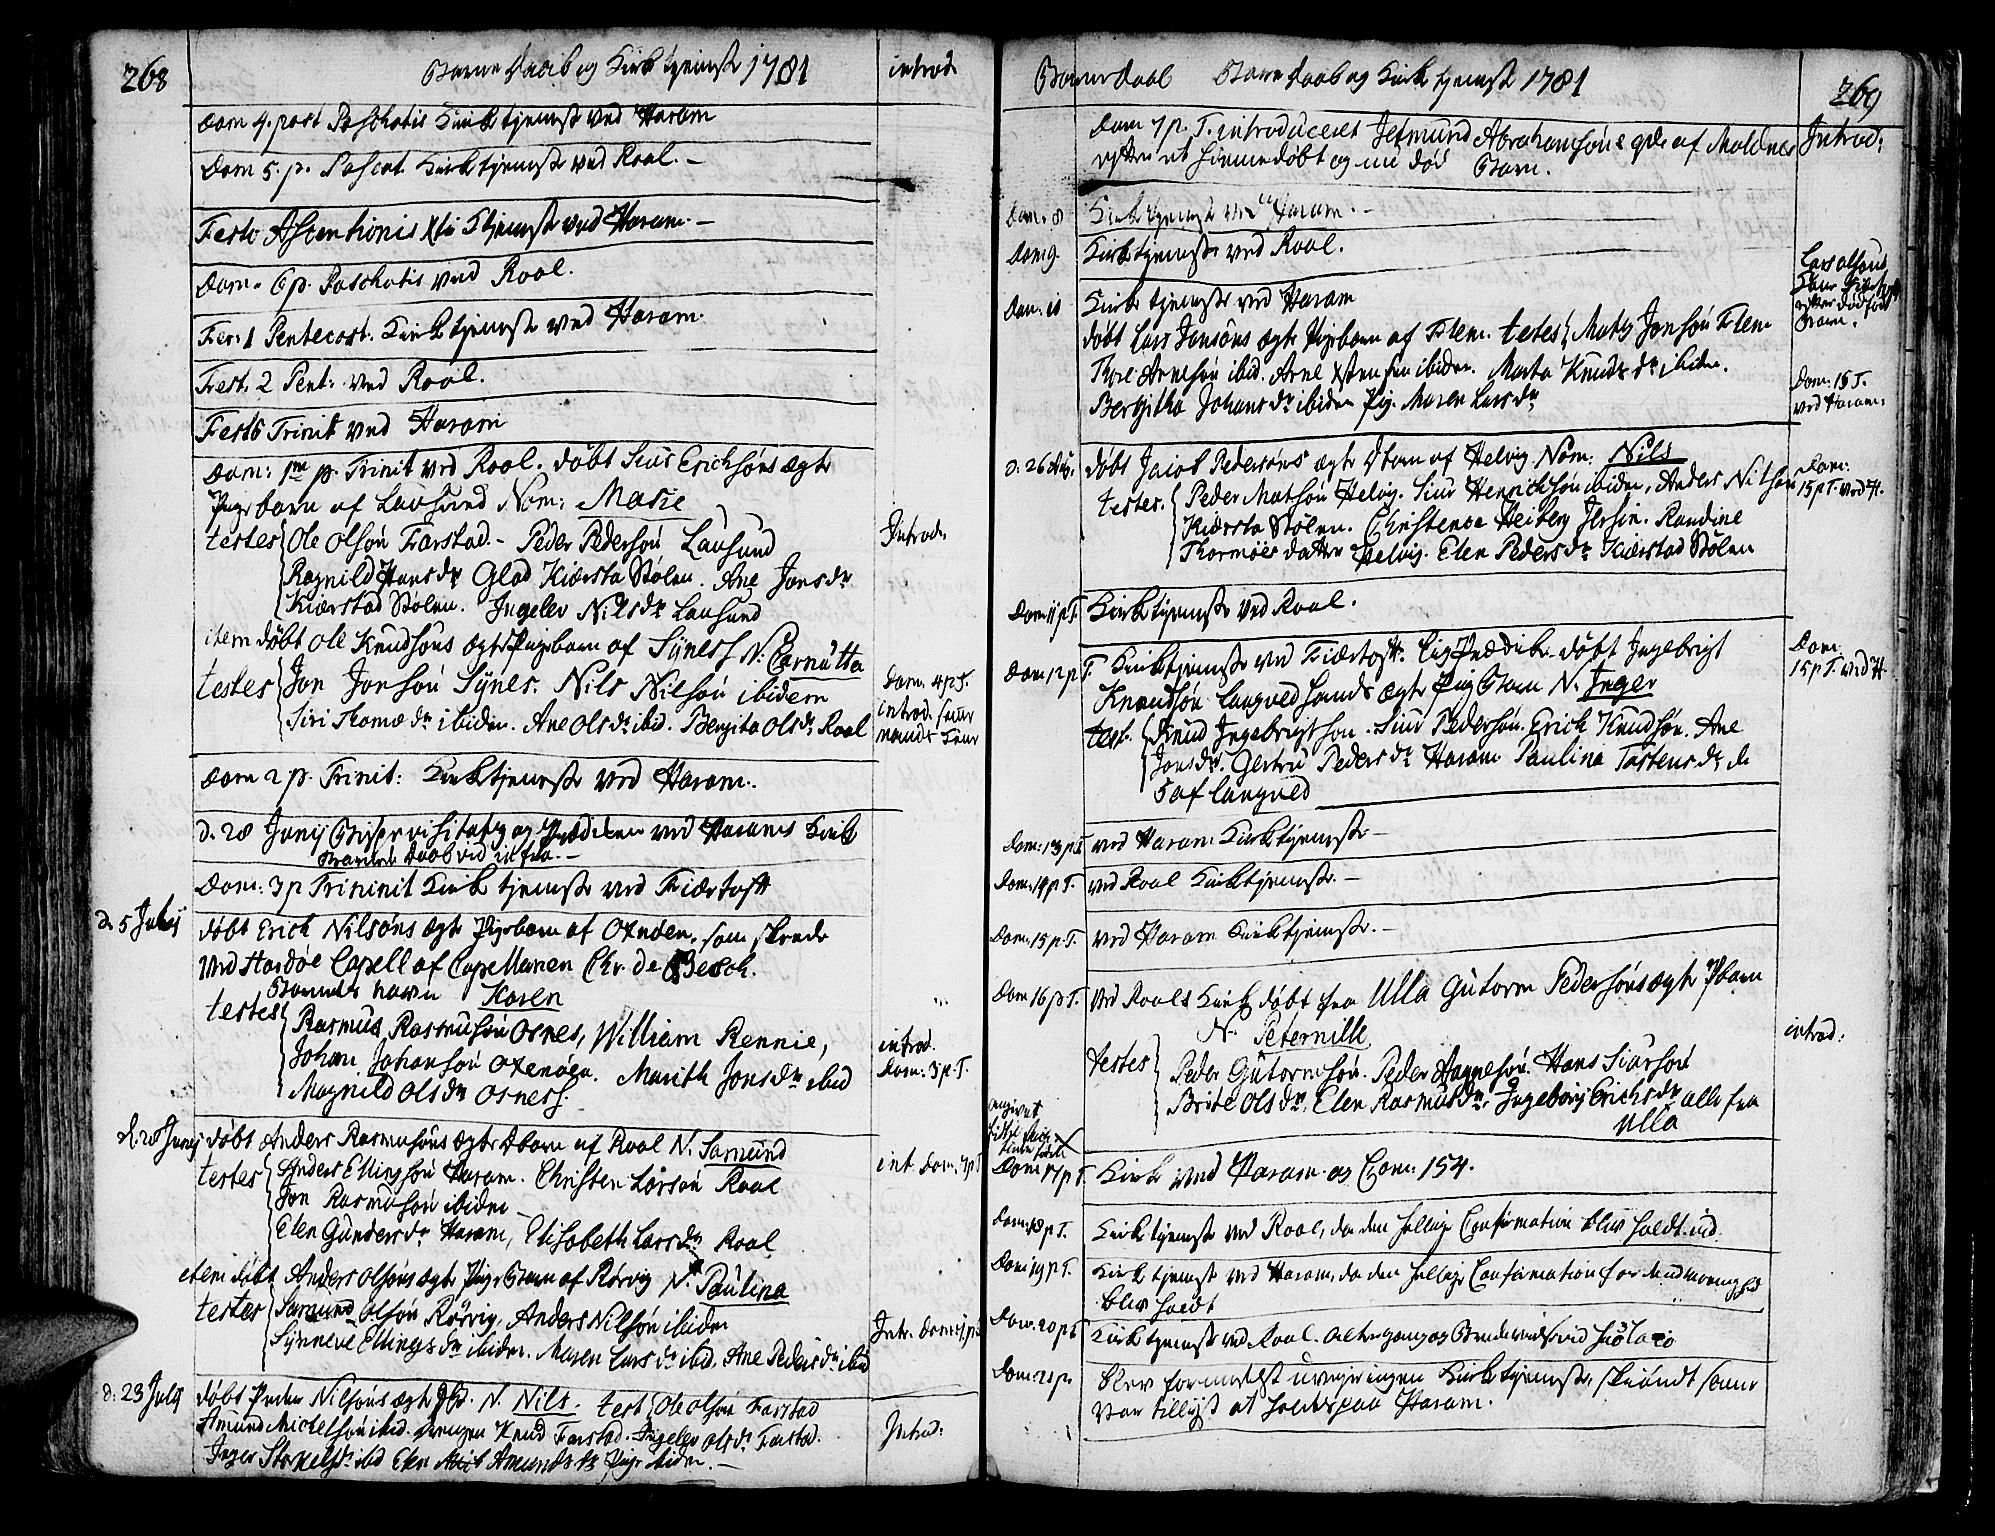 268
Barne Daab og Kirketjeneste 1781
introd.
Dom 4. post Paschatis Kirketjeneste ved Haram
Dom 5. p. Paschat. Kirketjeneste ved Roal. -
Festo Ascentionis Xti Ktjeneste ved Haram. -
Dom. 6 p. Paschatis ved Roal.
Fer: 1 Pentecost. Kirketjeneste ved Haram.
Fest. 2 Pent: ved Roal.
Festo Trinit ved Haram
Dom: 1me p. Trinit ved Roal. døbt Siur Erichsøns ægte
Pigebarn af Lausund Nom: Marie
testes Ole Olsøn Farstad. - Peder Pedersøn Lausund
Ragnild Hansdr Glad Kierstastølen. Ane Jonsdr
Kierstad Stølen. Ingeler Nilsdr Lausund
Introd.
item døbt Ole Knudsøns ægte Pigebarn af Syness N.
testes Jon Jonsøn Synes. Nils Nilsøn ibidem
Siri Thomædr ibidem. Ane Olsdr ibid. Bergita Olsdr Roal
Dom. 4 p T.
introd.
Dom 2 p. Trinit: Kirketjeneste ved Haram.
d. 28 Junij Bispe visitatz og Prædiken ved Harams Kirke
Barne Daab vid infra. -
Dom: 3 p Trininit Kirketjeneste ved Fiærtoft
d. 5 Julij døbt Erich Nilsøns ægte Pigebarn af Oxnøen, som skeede
ved Hardøe Capell af Capellanen Chr. de Besch.
Barnets navn Karen
testes Rasmus Rasmusøn Osnes, William Rennie,
Johan Johansøn Oxenøen. Marith Jonsdr ibid
Magnild Olsdr Osness.
introd.
Dom: 3 p. T.
d. 28 Junij døbt Anders Rasmusøns ægte Dbarn af Roal N. Samund
testes Anders Ellingsøn Haram. Christen Larsøn Roal
Jon Rasmusøn ibidem
Elen Gundersdr Haram, Elisabeth Larsdr Roal
int. Dom. 7 p T
item døbt Anders Olsøns ægte Pige Barn af Rørvig N. Paulina
testes Samund Olsøn Rørvig, Anders Nilsøn ibidem
Synneve Ellingsdr ibidem. Maren Larsdr ibid. Ane Pedersdr ibid
d: 23 Julij døbt Peder Nilsøns ægte N. Nils. test Ole Olsøn Farstad
Amund Michelsøn ibid. Drengen Knud Farstad. Ingeler Olsdr Farstad.
Inger ibid Elen Amundsdr Pige ibidem. -
Introd:
Barne Daab Barne Daab og Kirketjeneste 1781
269
Dom 7 p. T. introduceret Jetmund Abrahamsøns qde af Moldnes
efter et hiemmedøbt og nu død Barn.
Introd:
Dom. 8 Kirketjeneste ved Haram. -
Dom 9. Kirketjeneste ved Roal.
Dom. 10 Kirketjeneste ved Haram
døbt Lars Jonsøns ægte Pigebarn af Flem. testes Mats Jonsøn Flem
Thore Arnesøn ibid. Arne Xstensøn ibidem. Marta Knudsdr ibidem.
Bergitha Johansdr ibidem Pig. Maren Larsdr
Lars Olsøns
Dom: 15 T.
ved Haram:
d: 26 Aug. døbt Jacob Pedersøns ægte Dbarn af Helvig Nom: Nils
testes. Peder Matsøn Helvig. Siur Henrichsøn ibidem, Anders Nilsøn
Kiersta Stølen. Christence Heiberg Jersin. Randine
Thormøes datter Helvig. Elen Pedersdr Kierstad Stølen
Dom:
15 p T. ved H.
Dom 11 p T. Kirketjeneste ved Roal.
Dom 12 p T. Kirketjeneste ved Fiærtoft. døbt Ingebrigt
Knudsøn Langved Lands ægte Pig Barn N. Inger
test. Knud Ingebrigtson. Siur Pedersøn. Erich Knudsøn. Ane
Jonsdr. Gertru Pedersdr Haram Paulina Tostensdr de
5 af Langved
Dom.
15 p T. ved H.
Dom: 13 p T ved Haram: Kirketjeneste -
Dom: 14 p T. ved Roal Kirketjeneste. -
Dom: 15 p T. ved Haram Kirketjeneste. -
Dom 16 p T. ved Roals Kirke døbt fra Ulla Gutorm Pedersøns ægte Pbarn
N. Peternille
testes Peder Gutormsøn. Peder Haagnesøn. Hans Siursøn
Brite Olsdr, Elen Rasmusdr, Ingeborg Erichsdr alle fra
Ulla
introd:
angivet
Dom 17 p T. Kirke ved Haram og Com: 154.
Dom: 18 p T. Kirketjeneste ved Roal, da den hellige Confirmation blev holdt ud.
Dom: 19 p T. Kirketjenest ved Haram, da den hellige Confirmation for
blev holdt
Dom. 20 p T Kirketjeneste ved Roal.
Dom: 21 p. blev formedelst uveyr ingen Kirketjeneste, skiøndt samme
var tillyst at holdes paa Haram.